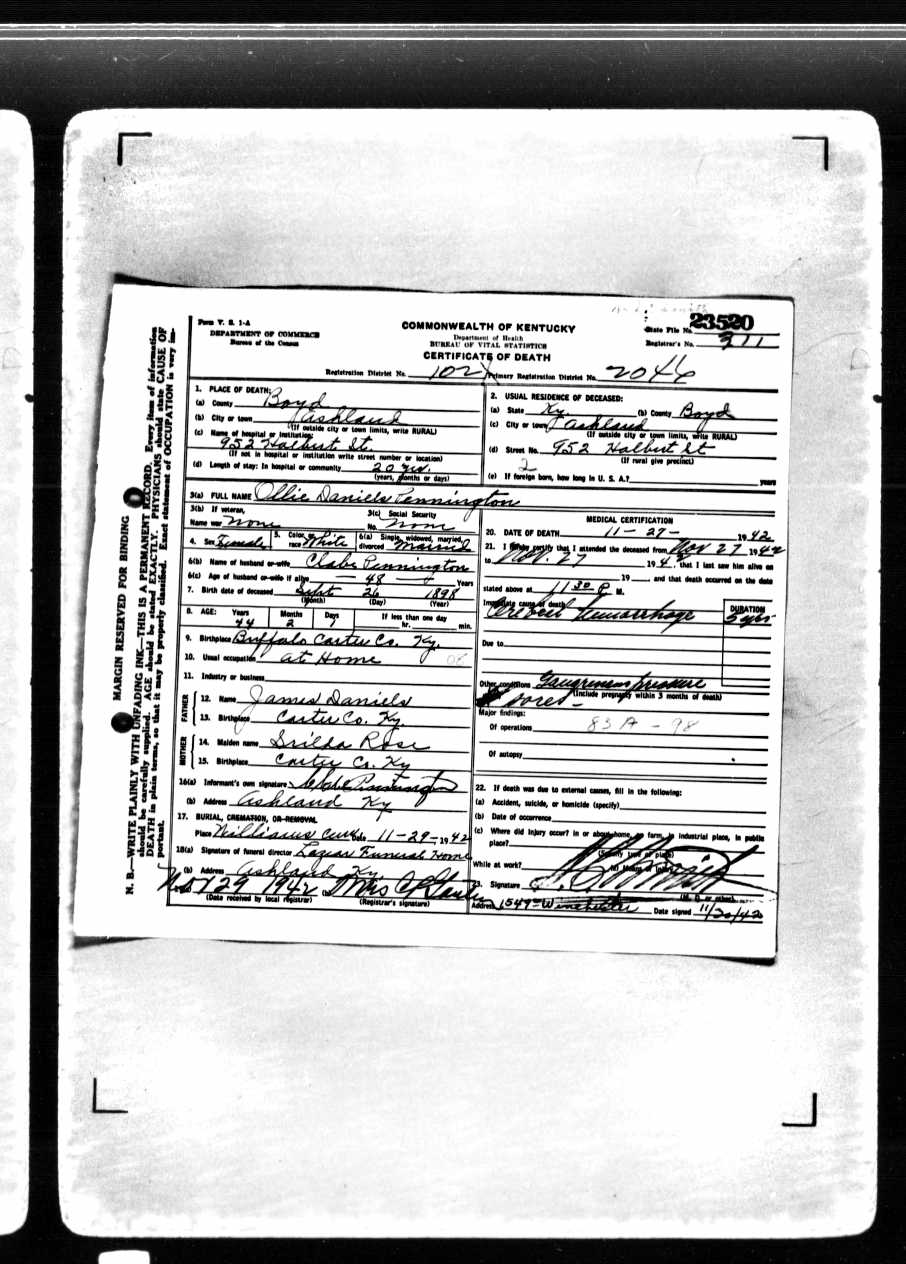 Form V. S. 1-A
DEPARTMENT OF COMMERCE
Bureau of the Census
COMMONWEALTH OF KENTUCKY
Department of Health
BUREAU OF VITAL STATISTICS
CERTIFICATE OF DEATH
State File No. 23520
Registrar's No. 311
Registration District No. 102 Primary Registration District No. 2046
1. PLACE OF DEATH:
(a) County Boyd
(b) City or town Ashland
(If outside city or town limits, write RURAL)
(c) Name of hospital or institution:
952 Halbert St.
(If not in hospital or institution write street number or location)
(d) Length of stay: In hospital or community 20 yrs.
(years, months or days)
2. USUAL RESIDENCE OF DECEASED:
(a) State Ky (b) County Boyd
(c) City or town Ashland
(If outside city or town limits, write RURAL)
(d) Street No. 952 Halbert St
(If rural give precinct)
2
(e) If foreign born, how long in U. S. A.? years
3(a) FULL NAME Ollie Daniels Pennington
3(b) If veteran,
Name war None
3(c) Social Security
No. None
4. Sex Female 5. Color race White 6(a) Single, widowed, married, divorced Married
6(b) Name of husband or wife Clabe Pennington
6(c) Age of husband or wife if alive 48 Years
7. Birth date of deceased Sept 26 1898
(Month) (Day) (Year)
8. AGE: Years 44 Months 2 Days 1 If less than one day hr. min.
9. Birthplace Buffalo Carter Co. Ky.
10. Usual occupation at Home
11. Industry or business
FATHER
12. Name James Daniels
13. Birthplace Carter Co. Ky.
MOTHER
14. Maiden name Srilda Rose
15. Birthplace Carter Co. Ky
16(a) Informant's own signature Clabe Pennington
(b) Address Ashland Ky
17. BURIAL, CREMATION, OR REMOVAL
Place Williams Date 11-29-1942
18(a) Signature of funeral director Lazear Funeral Home
(b) Address Ashland Ky.
Nov 29 1942 Mrs
(Date received by local registrar) (Registrar's signature)
MEDICAL CERTIFICATION
20. DATE OF DEATH 11-29- 1942
21. I hereby certify that I attended the deceased from Nov 27 1942
to Nov. 27 194, that I last saw him alive on
19 and that death occurred on the date
stated above at 11 30 P M.
Immediate cause of death
Cerebral Hemorrhage
DURATION
3 yrs
Due to
Other conditions Gangrenous pressure
(Include pregnancy within 3 months of death)
sores-
Major findings:
Of operations 83A-98
Of autopsy
22. If death was due to external causes, fill in the following:
(a) Accident, suicide, or homicide (specify)
(b) Date of occurrence
(c) Where did injury occur? in or about home, farm, industrial place, in public
place?
(Specify type of place)
While at work? (e) Means of injury
23. Signature
(M. D. or other)
Address 1549 Winchester Date signed 11/20/42
MARGIN RESERVED FOR BINDING
N. B.—WRITE PLAINLY WITH UNFADING INK—THIS IS A PERMANENT RECORD. Every item of information
should be carefully supplied. AGE should be stated EXACTLY. PHYSICIANS should state CAUSE OF
DEATH in plain terms, so that it may be properly classified. Exact statement of OCCUPATION is very im-
portant.